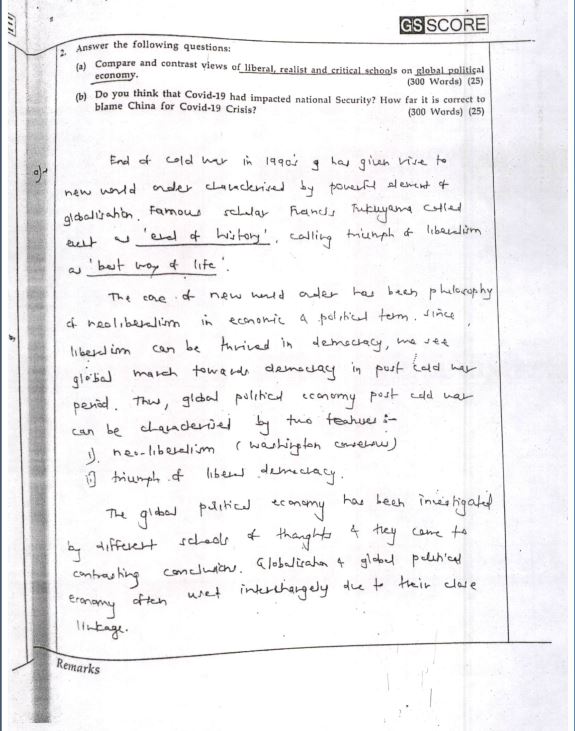 GSSCORE
2. Answer the following questions:
(a) Compare and contrast views of liberal, realist and critical schools on global political
economy. (300 Words) (25)
(b) Do you think that Covid-19 had impacted national Security? How far it is correct to
blame China for Covid-19 Crisis? (300 Words) (25)
a)
End of cold war in 1990's has given rise to
new world order characterised by powerful element of
globalisation. Famous scholar Francis Fukuyama called
as 'end of history', calling triumph of liberalism
as 'best way of life'.
The core of new world order has been philosophy
of neoliberalism in economic & political term. Since
liberalism can be thrived in democracy, we see
global march towards democracy in post cold war
period. Thus, global political economy post cold war
can be characterised by two features :-
i) neo-liberalism (Washington consensus)
ii) triumph of liberal democracy.
The global political economy has been investigated
by different schools of thoughts & they came to
contrasting conclusions. Globalisation & global political
economy often used interchangely due to their close
linkage.
Remarks